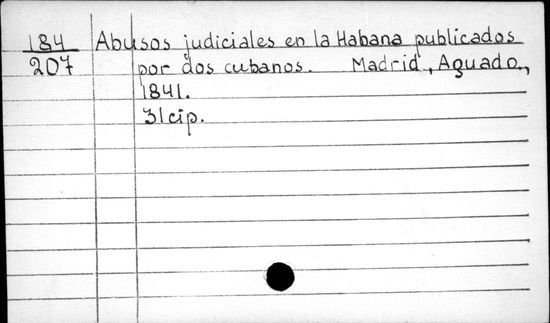 184 Abusos judiciales en la Habana publicados
207 por dos cubanos. Madrid, Aguado.,
1841.
31cip.